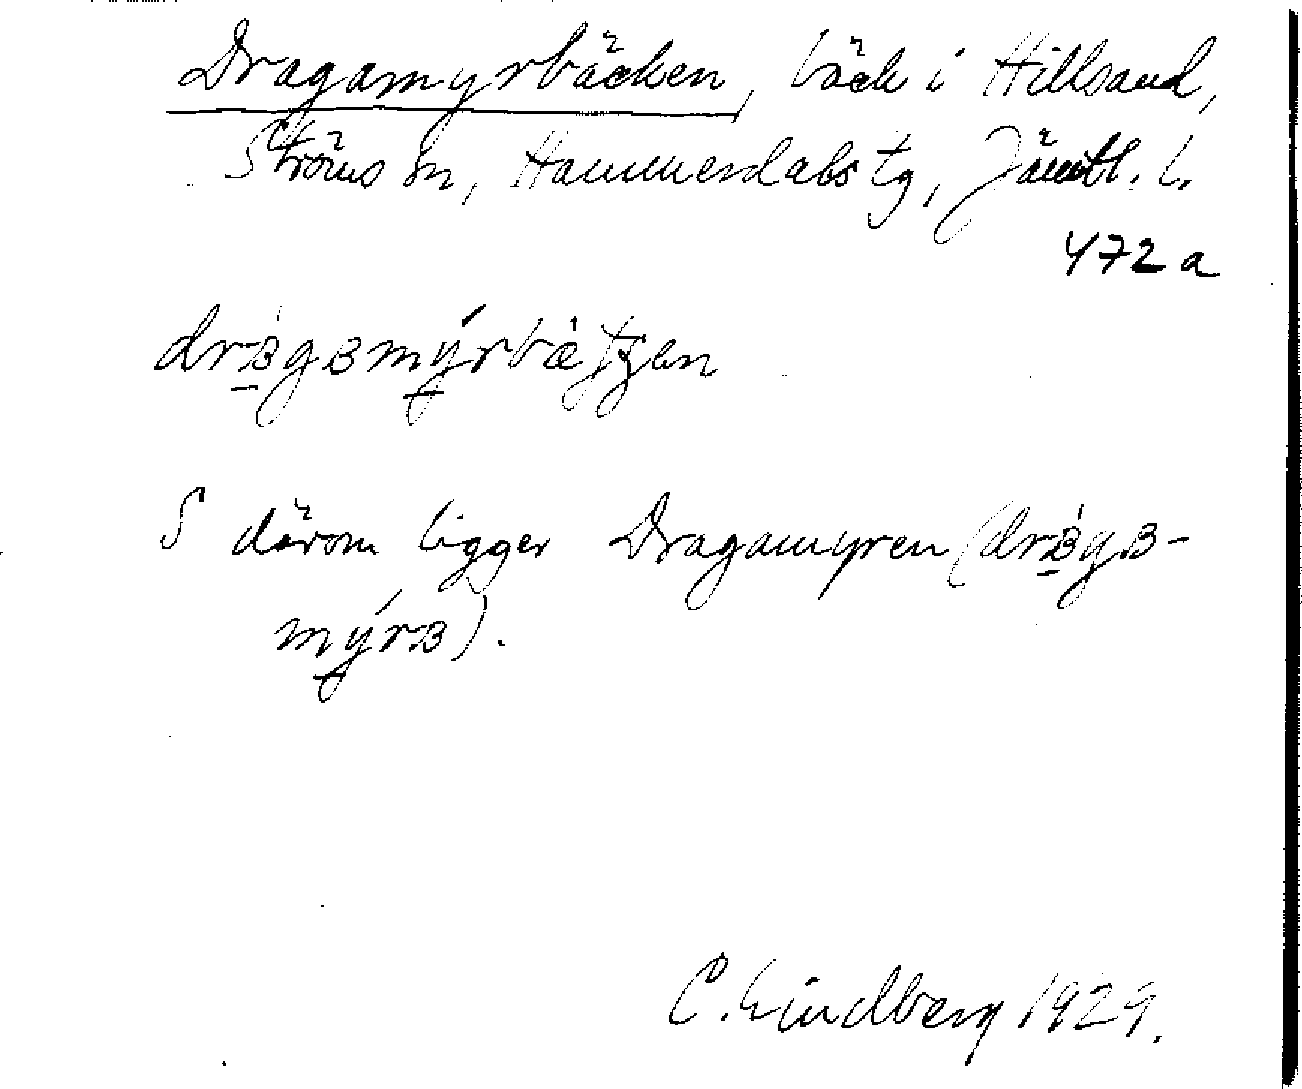 Dragamyrbäcken, bäck i Hillsand,
Ströms sn, Hammerdals tg, Jämtl. l.
472 a
S därom ligger Dragamyren
C. Lindberg 1929.